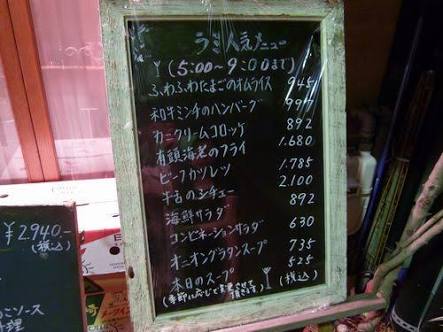 人気メニュー
(5:00〜9:00まで)
ふわふわたまごのオムライス 945
和牛ミンチのハンバーグ 997
カニクリームコロッケ 892
有頭海老のフライ 1.680
ビーフカツレツ 1.785
牛舌のシチュー 2.100
海鮮サラダ 892
コンビネーションサラダ 630
オニオングラタンスープ 735
本日のスープ 525
(季節に応じて変更させて頂きます) (税込)
¥2,940-
(税込)
ソース
料理